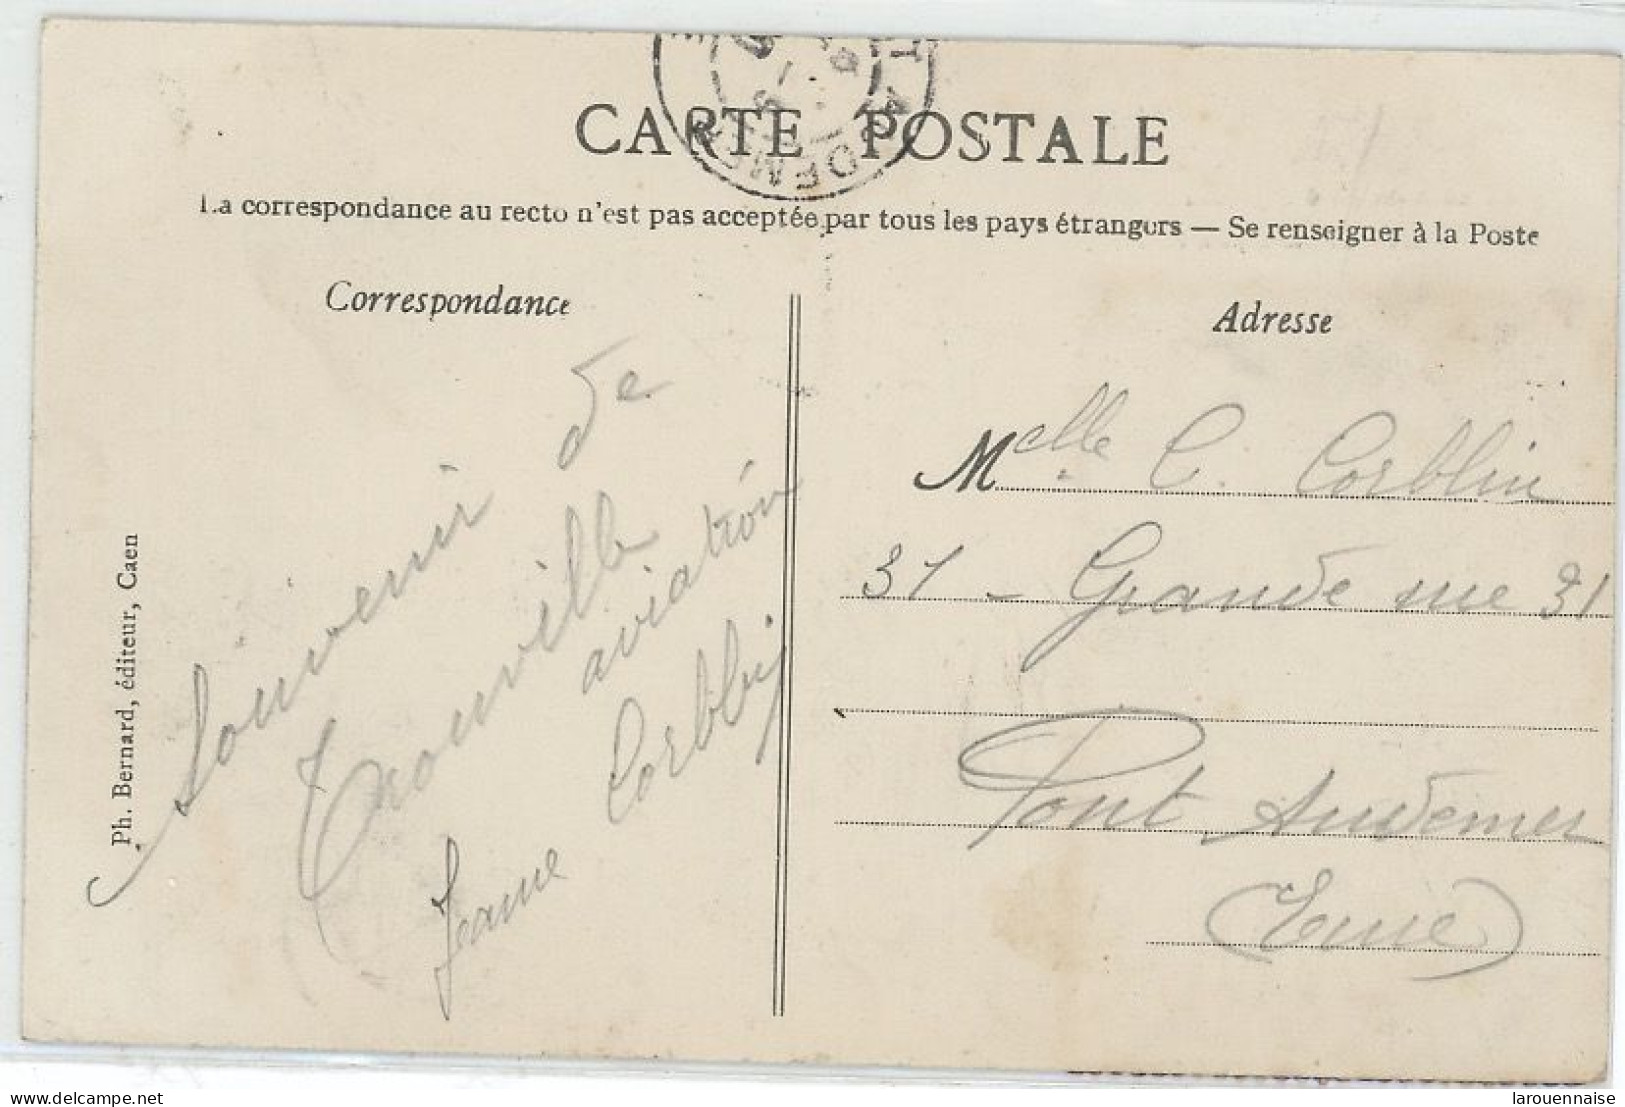 CARTE POSTALE
La correspondance au recto n'est pas acceptée par tous les pays étrangers — Se renseigner à la Poste
Correspondance
Souvenir de
Trouville
aviation
Jeanne Corblin
Ph. Bernard, éditeur, Caen
Adresse
Melle C. Corblin
31 - Grande rue 31
Pont Audemer
(Eure)
delcampe.net
larouennaise